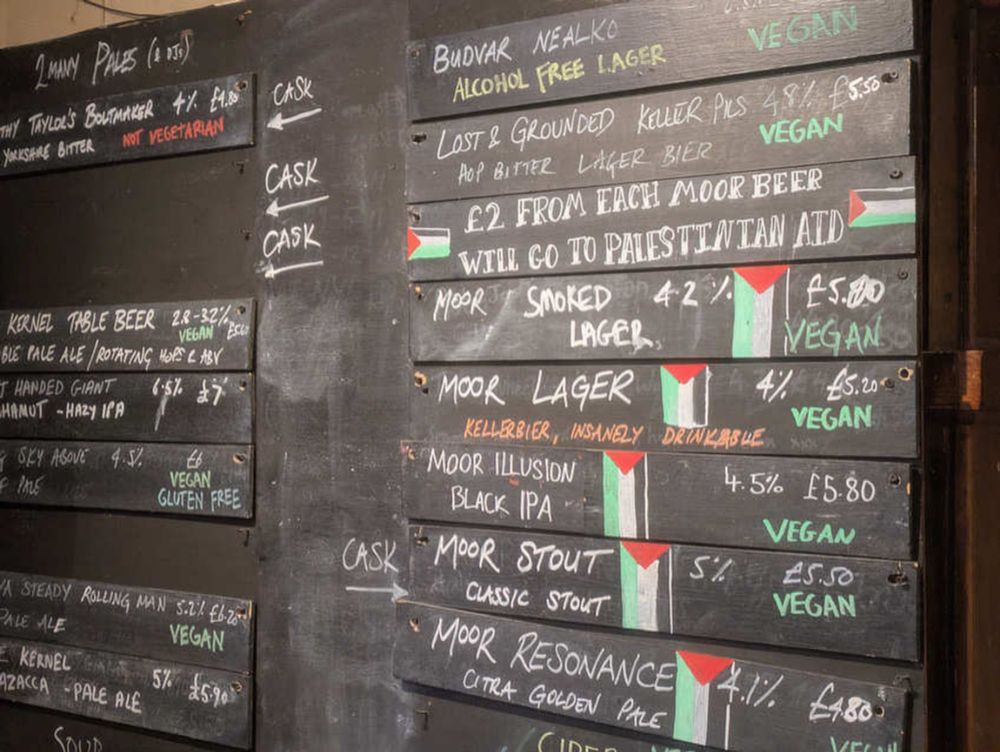 2MANY PALES (& DJS)
THY TAYLOR'S BOLTMAKER 4% £4.80
YORKSHIRE BITTER NOT VEGETARIAN
CASK
CASK
CASK
KERNEL TABLE BEER 2.8-3.2%
VEGAN
BLE PALE ALE / ROTATING HOPS & ABV
T HANDED GIANT 6.5% £7
HAMUT - HAZY IPA
SKY ABOVE 4.5% £6
PALE VEGAN
GLUTEN FREE
YA STEADY ROLLING MAN 5.2% £6.20
PALE ALE VEGAN
E KERNEL 5% £5.90
AZACCA - PALE ALE
SOUR
BUDVAR NEALKO VEGAN
ALCOHOL FREE LAGER
LOST & GROUNDED KELLER PILS 4.8% £5.50
HOP BITTER LAGER BIER VEGAN
£2 FROM EACH MOOR BEER
WILL GO TO PALESTINIAN AID
MOOR SMOKED 4.2%
LAGER VEGAN
MOOR LAGER 4% £5.20
VEGAN
KELLERBIER, INSANELY DRINKABLE
MOOR ILLUSION 4.5% £5.80
BLACK IPA VEGAN
CASK
MOOR STOUT 5% £5.50
CLASSIC STOUT VEGAN
MOOR RESONANCE 4.1% £4.80
CITRA GOLDEN PALE VEGAN
CIDER